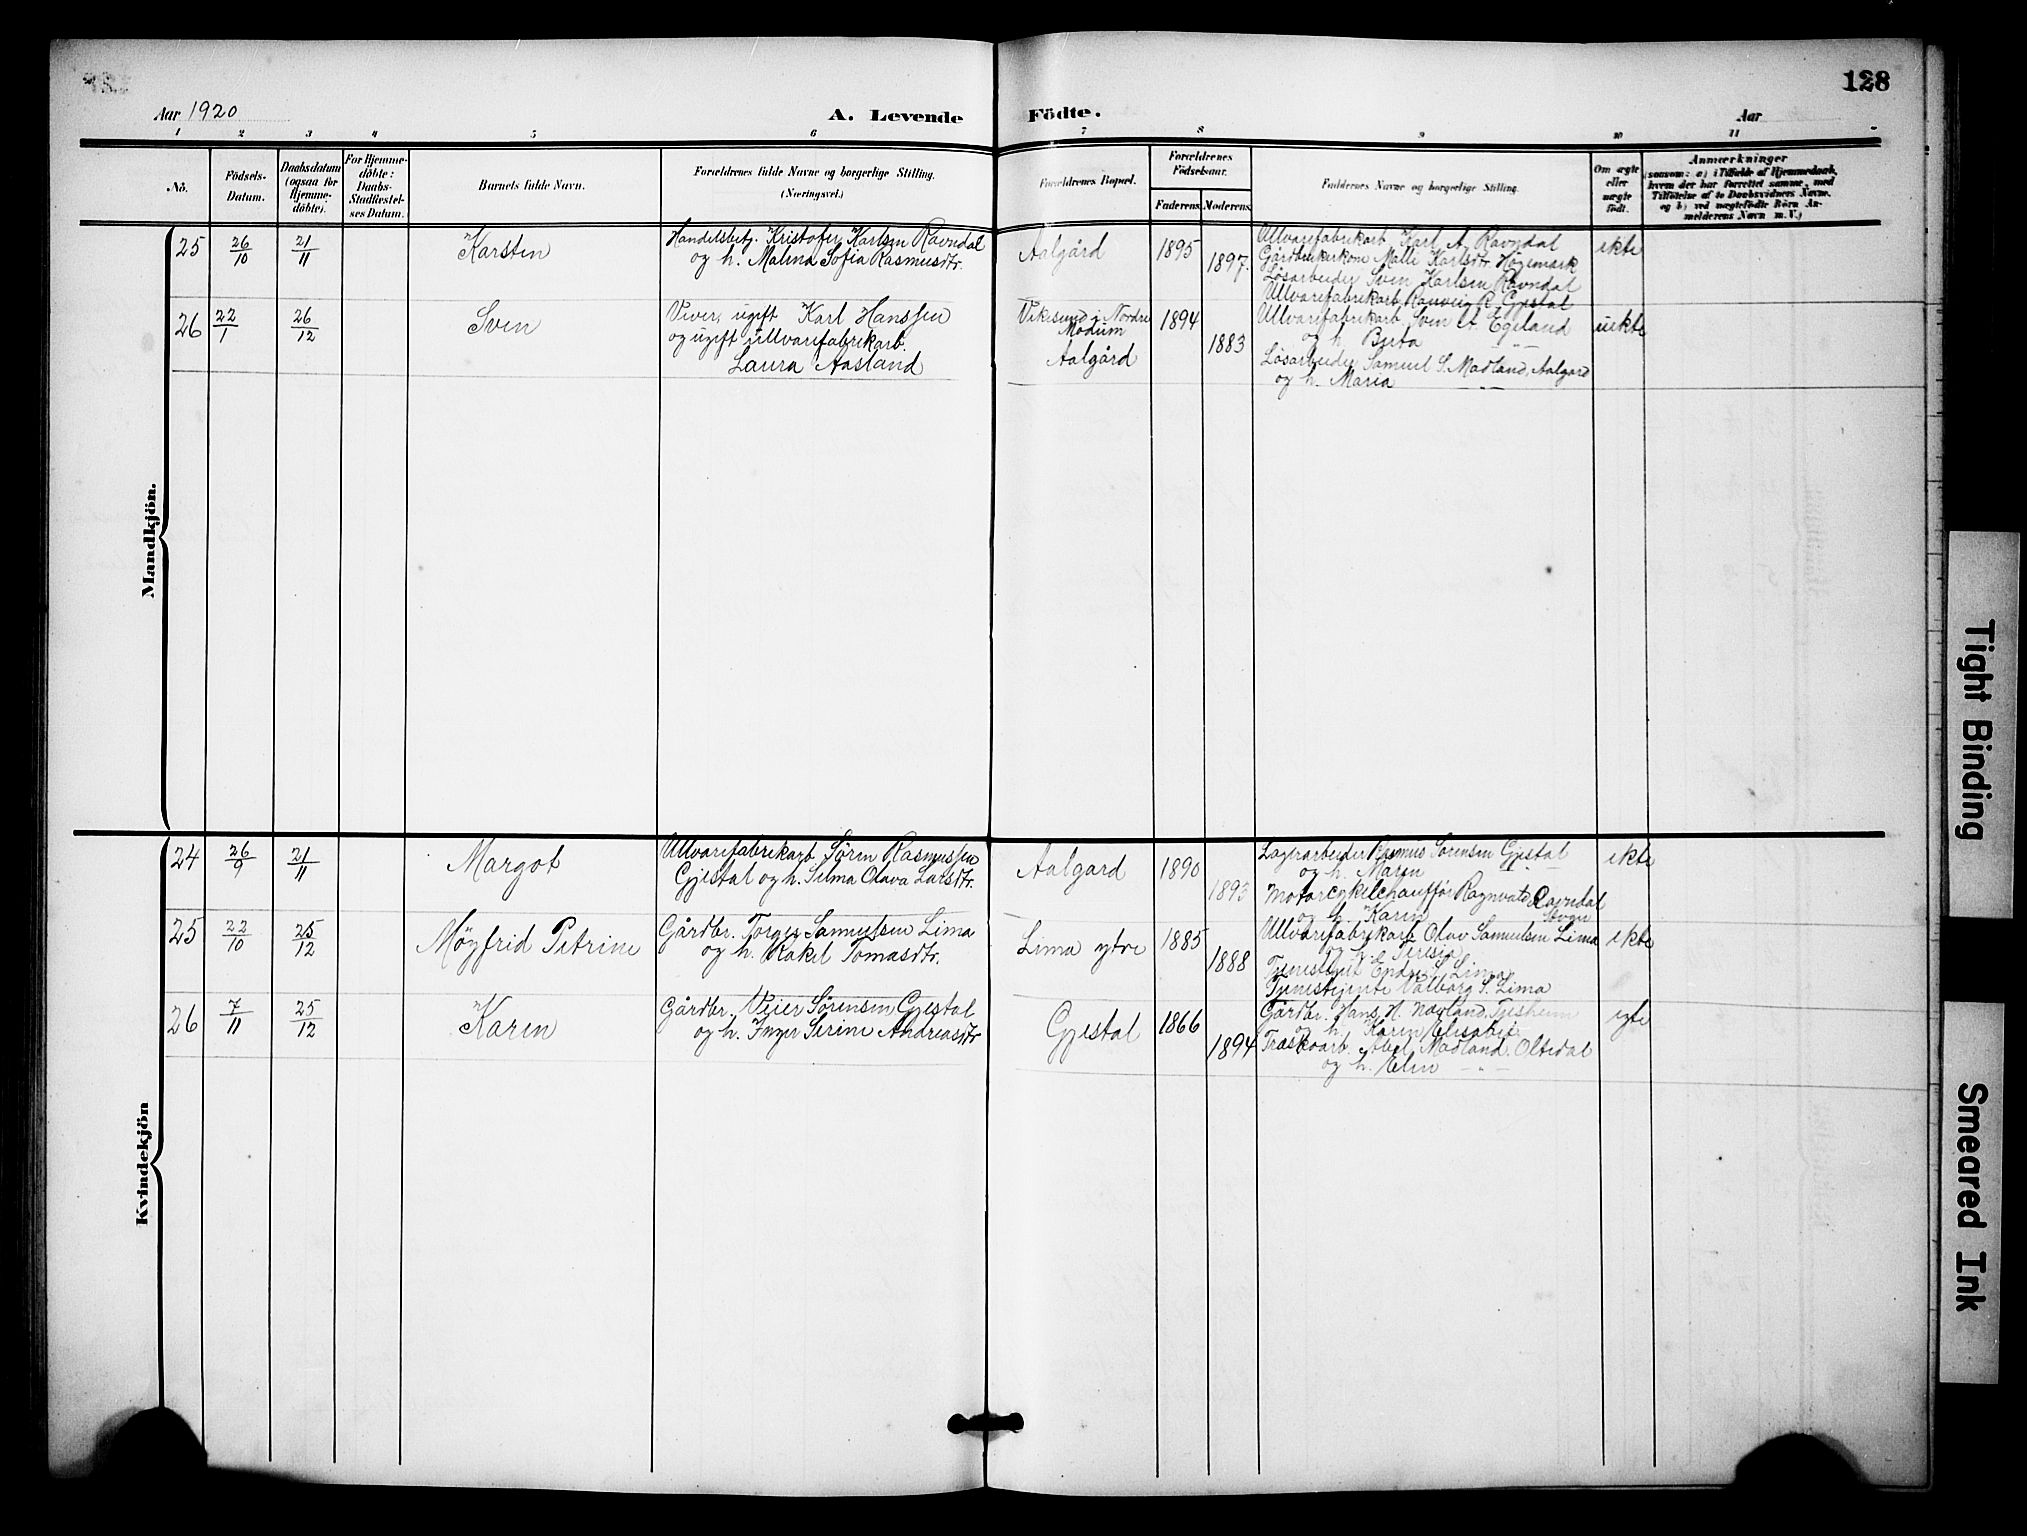 128
Aar 1920
A. Levende
Födte.
Aar
1 2 3 4 5 6 7 8 9 10 11
Nö.
Födsels-
Datum.
Daabsdatum
(ogsaa for
Hjemme-
döbte).
For Hjemme-
döbte:
Daabs-
Stadfæstel-
ses Datum.
Barnets fulde Navn.
Forældrenes fulde Navne og borgerlige Stilling.
(Næringsvei.)
Forældrenes Bopæl.
Forældrenes
Födselsaar.
Faderens.
Moderens.
Faddernes Navne og borgerlige Stilling.
Om ægte
eller
uægte
født.
Anmærkninger
(saasom: a) i Tilfælde af Hjemmedaab,
hvem der har forrettet samme, med
Tilföielse af to Daabsvidners Navne.
og b) ved uægtefödte Börn An-
melderens Navn m. V.)
Mandkjön.
25
26/10
21/11
Karsten
Handelsbetj. Kristofer Karlsen Ravndal
og h. Malina Sofia Rasmusdtr.
Aalgård
1895
1897.
Ullvarefabrikarb. Karl A. Ravndal
Gårdbrukerkone Malli Karlsdtr. Høgemark
Løsarbeider Sven Karlsen Ravndal
Ullvarefabrikarb. Rauveig R. Gjestal
ekte
26
22/1
26/12
Sven
Væver, ugift Karl Hanssen
og ugift ullvarefabrikarb.
Laura Aasland
Vikesund i Nordre
Modum
Aalgård
1894
1883
Ullvarefabrikarb. Sven A. Egeland
og h. Berta — " —
Løsarbeider Samuel S. Madland, Aalgard
og h. Maria — " —
uekte
Kvindekjön
24
26/9
21/11
Margot
Ullvarefabrikarb. Søren Rasmussen
Gjestal og h. Selma Olava Larsdtr.
Aalgard
1890
1893
Lagerarbeider Rasmus Sørensen Gjestal
og h. Maren
Motorcykelchauffør Ragnvald Ravndal
og h. Karen
ekte
25
22/10
25/12
Møyfrid Petrine
Gårdbr. Torger Samuelsen Lima
og h. Rakel Tomasdtr.
Lima ytre
1885
1888
Ullvarefabrikarb. Olav Samuelsen Lima
og h. Teresia
Tjenestegut Endre S. Lima
Tjenestejente Valborg S. Lima
ekte
26
7/11
25/12
Karen
Gårdbr. Veier Sørensen Gjestal
og h. Inger Serine Andreasdtr
Gjestal
1866
1894
Gårdbr. Hans H. Nævland, Tjesheim
og h. Karen Elisabet
Træskoarb. Abel Madland. Oltedal
og h. Elen — " —
egte
Tight Binding
Smeared Ink